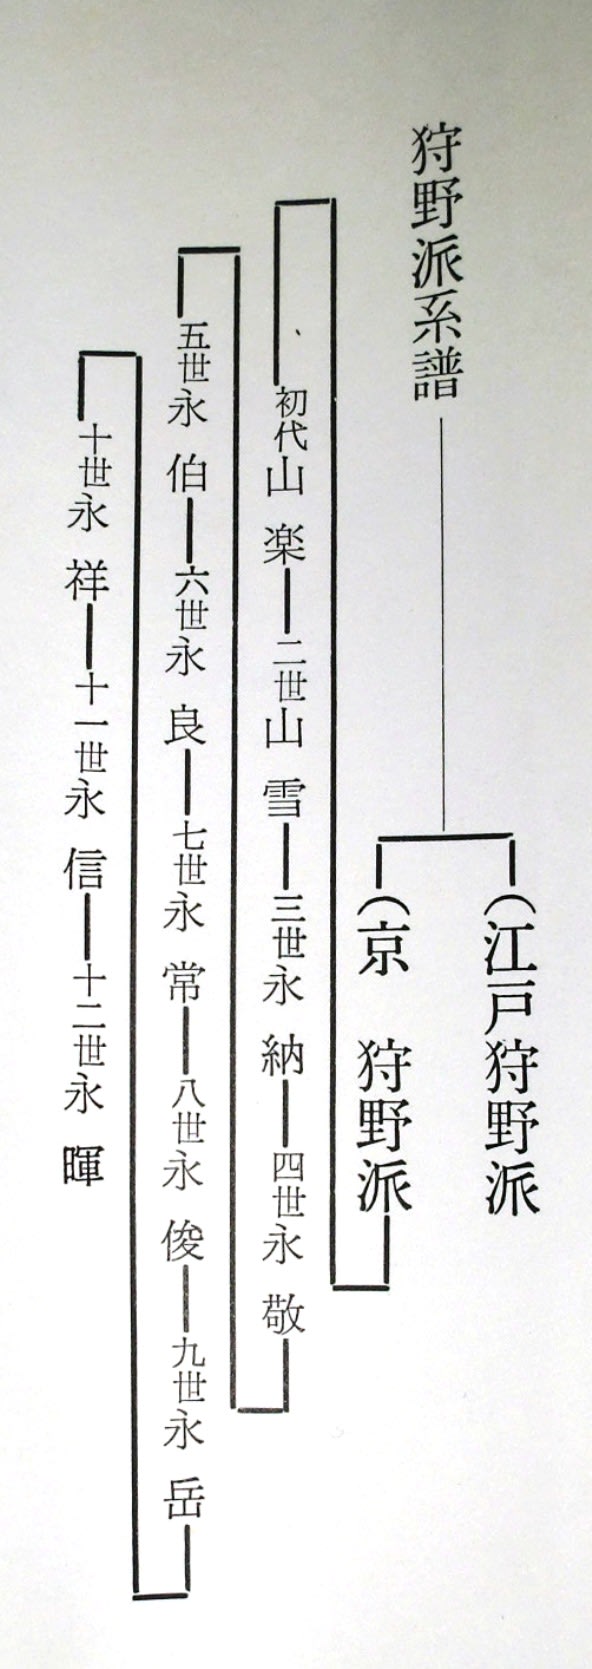 狩野派系譜
（江戸狩野派
（京 狩野派
初代山楽
二世山雪
三世永納
四世永敬
五世永伯
六世永良
七世永常
八世永俊
九世永岳
十世永祥
十一世永信
十二世永暉